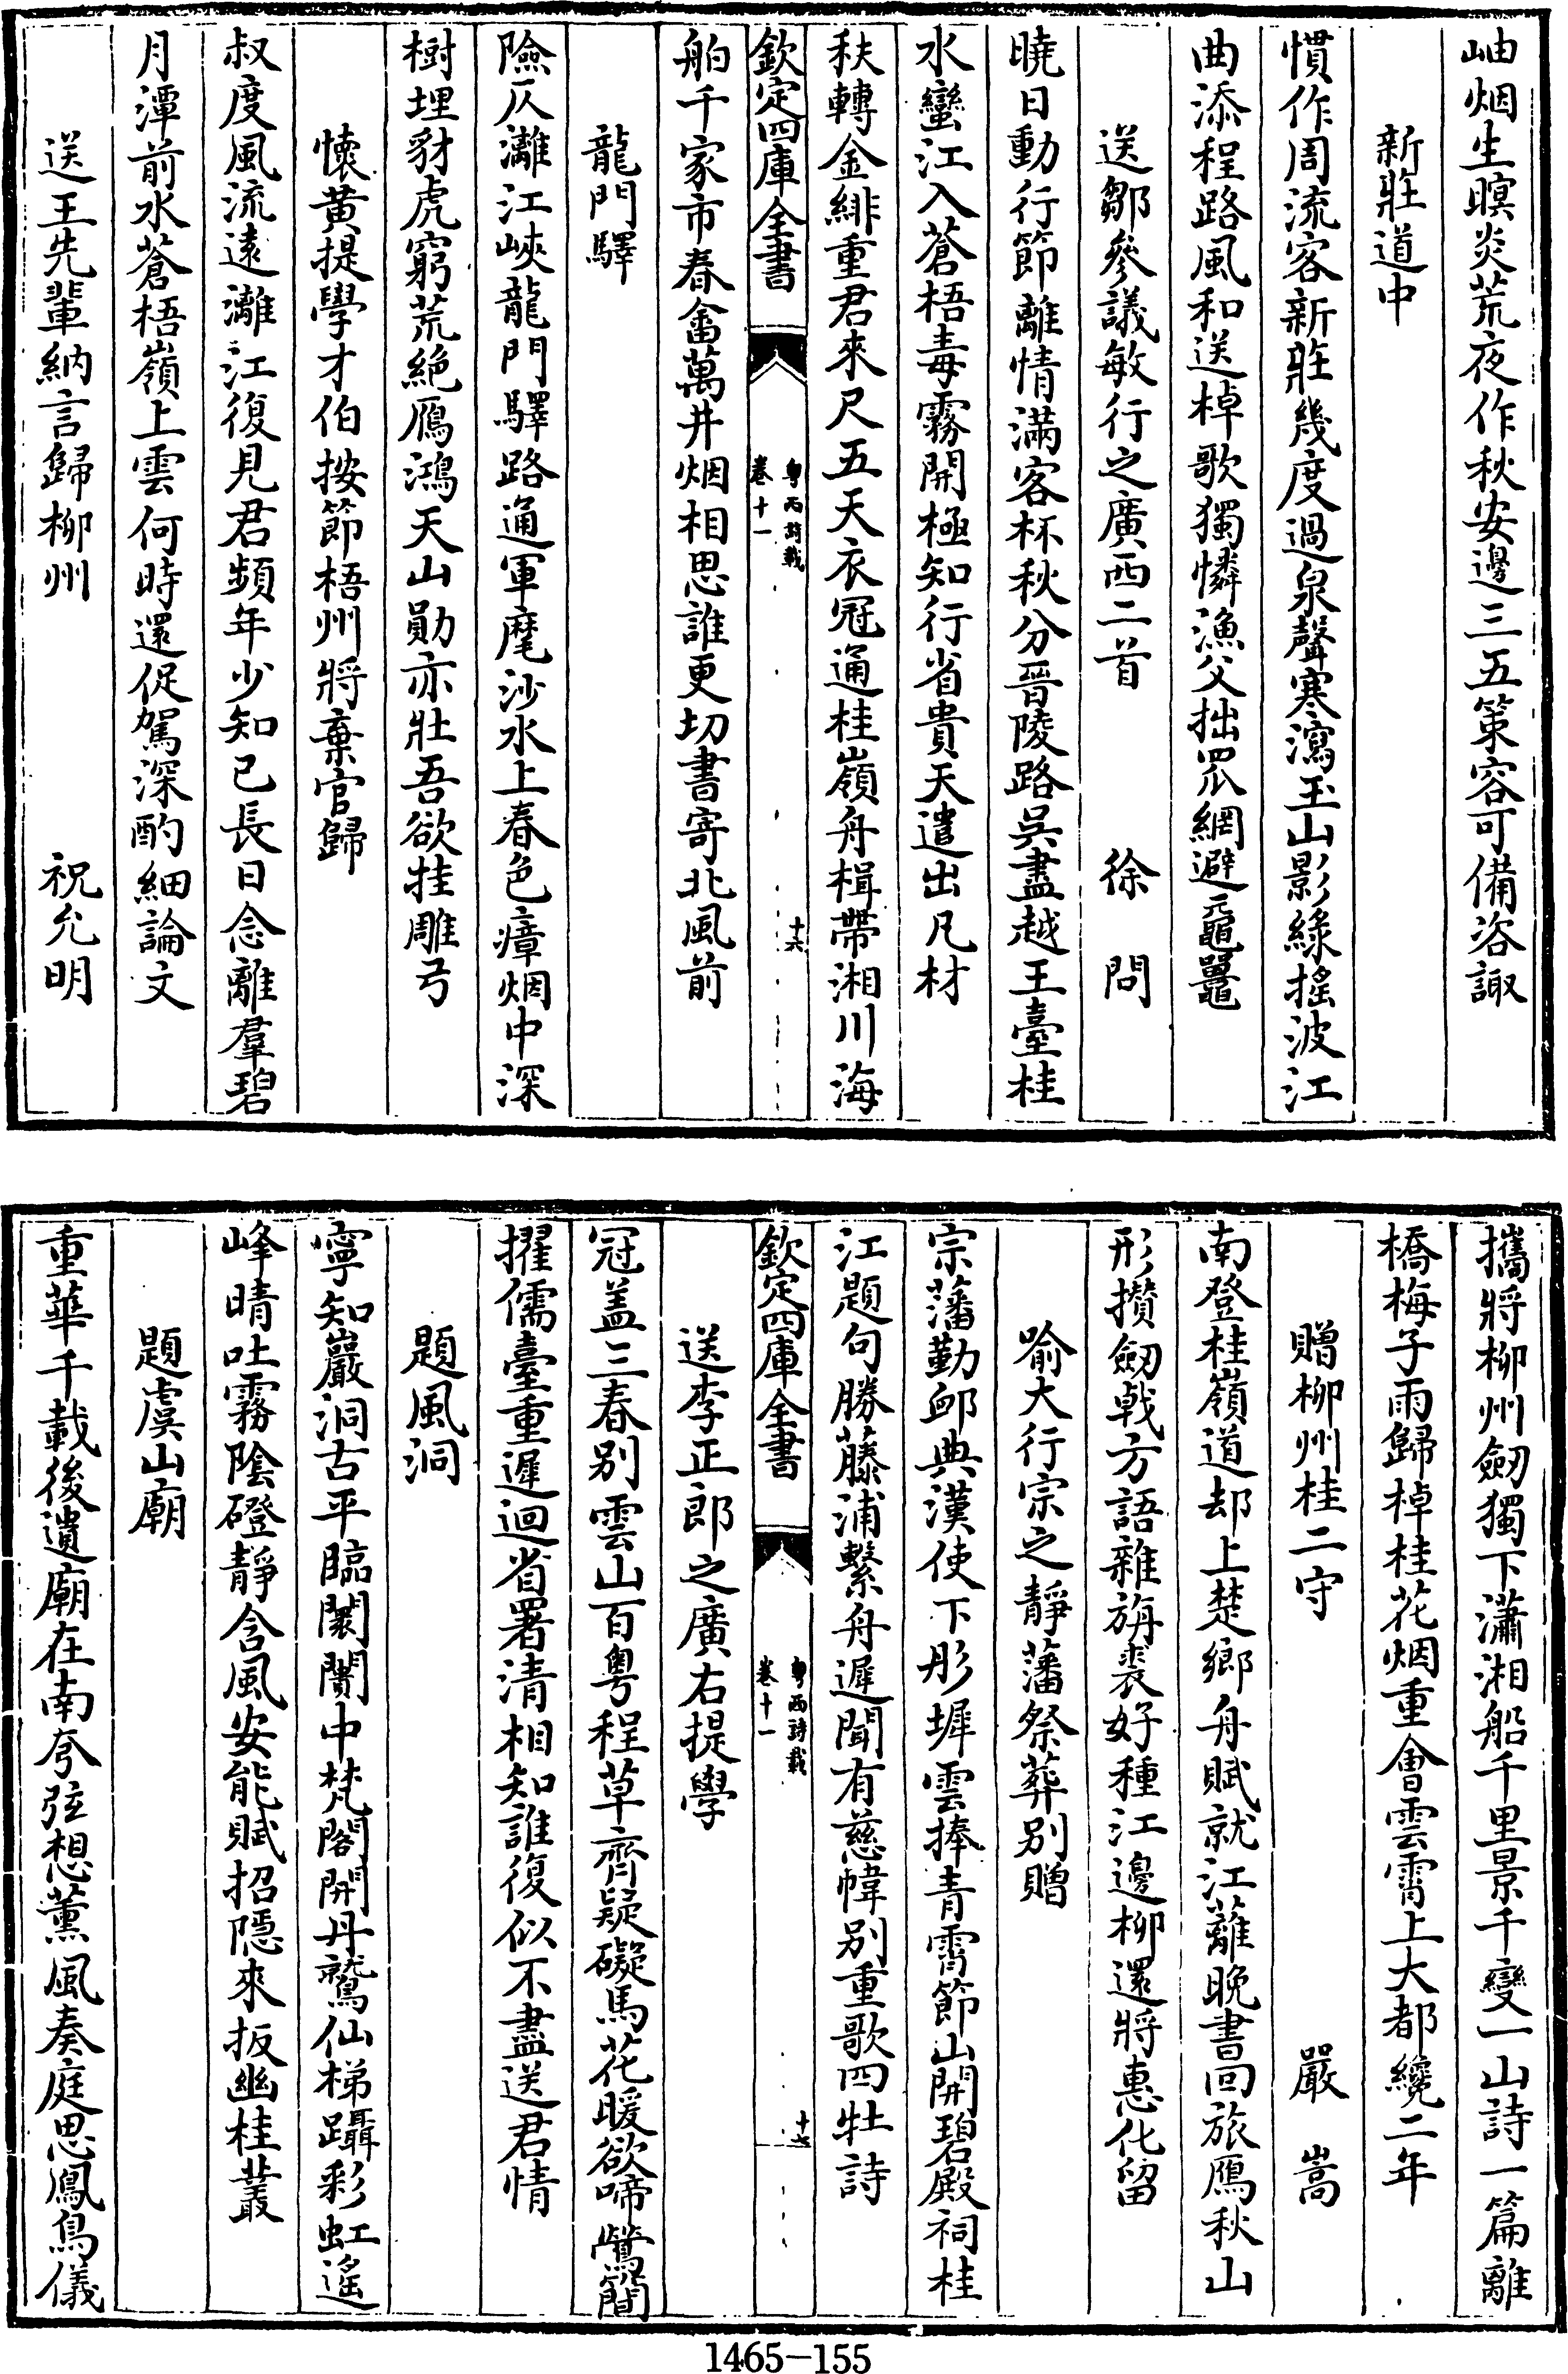 岫烟生暝炎荒夜作秋安邊三五策容可備咨諏
新莊道中
慣作周流客新莊幾度過泉聲寒瀉玉山影綠搖波江
曲添程路風和送棹歌獨憐漁父拙罛網避黿鼉
送鄒參議敏行之廣西二首 徐問
曉日動行節離情滿客杯秋分晉陵路吳盡越王臺桂
水蠻江入蒼梧毒霧開極知行省貴天遣出凡材
秩轉金緋重君來尺五天衣冠通桂嶺舟楫帶湘川海
欽定四庫全書
粵西詩載
卷十一
十六
舶千家市春畬萬井烟相思誰更切書寄北風前
龍門驛
險仄灕江峽龍門驛路通軍麾沙水上春色瘴烟中深
樹埋豺虎窮荒絶鴈鴻天山勛亦壯吾欲挂雕弓
懐黄提學才伯按節梧州將棄官歸
叔度風流遠灕江復見君頻年少知已長日念離羣碧
月潭前水蒼梧嶺上雲何時還促駕深酌細論文
送王先輩納言歸柳州 祝允明
攜將柳州劒獨下瀟湘船千里景千變一山詩一篇離
橋梅子雨歸棹桂花烟重會雲霄上大都纔二年
贈柳州桂二守 嚴嵩
南登桂嶺道却上楚鄉舟賦就江蘺晩書回旅鴈秋山
形攢劒戟方語雜旃裘好種江邊柳還將惠化留
喻大行宗之靜藩祭葬别贈
宗藩勤卹典漢使下彤墀雲捧青霄節山開碧殿祠桂
江題句勝藤浦繫舟遲聞有慈幃别重歌四牡詩
欽定四庫全書
粵西詩載
卷十一
十七
送李正郎之廣右提學
冠盖三春别雲山百粤程草齊疑礙馬花暖欲啼鶯簡
擢儒臺重遲迴省署清相知誰復似不盡送君情
題風洞
寧知巖洞古平臨闤闠中梵閣開丹鷲仙梯躡彩虹遥
峰晴吐霧陰磴靜含風安能賦招隠來扳幽桂叢
題虞山廟
重華千載後遺廟在南夯弦想薰風奏庭思鳳鳥儀
1465-155